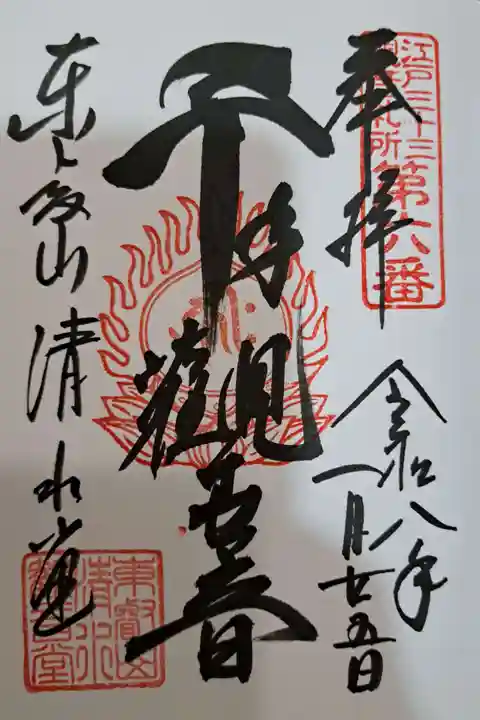 江戸三十三
観音札所
第六番
奉拝
令和八年
一月廿五日
千手観世音
東叡山清水堂
東叡山
清水
観音堂